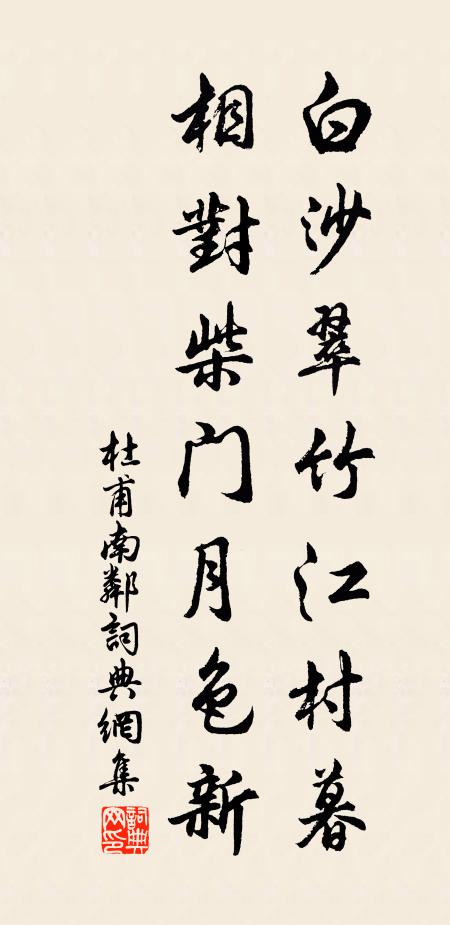 白沙翠竹江村暮
相對柴门月色新
杜甫南鄰詞典網集
詞典網印